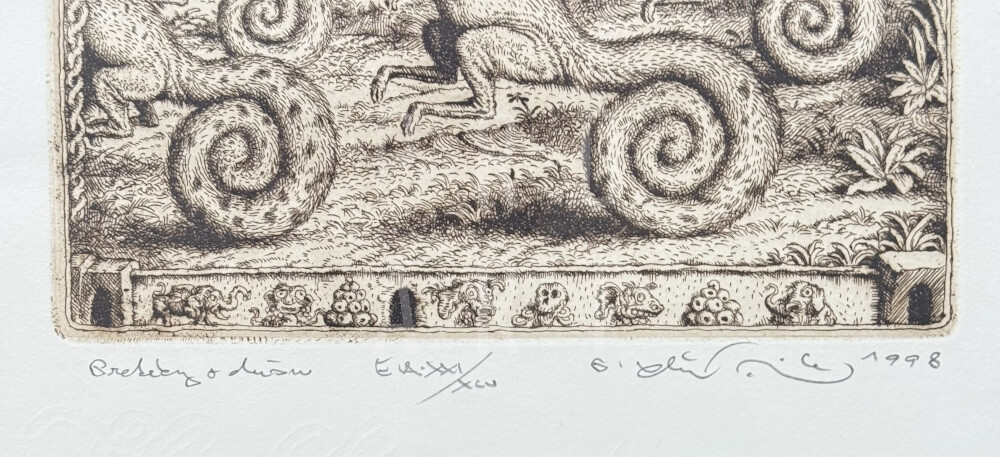 Preteky o dušu E.A. XXI/XLV 1998